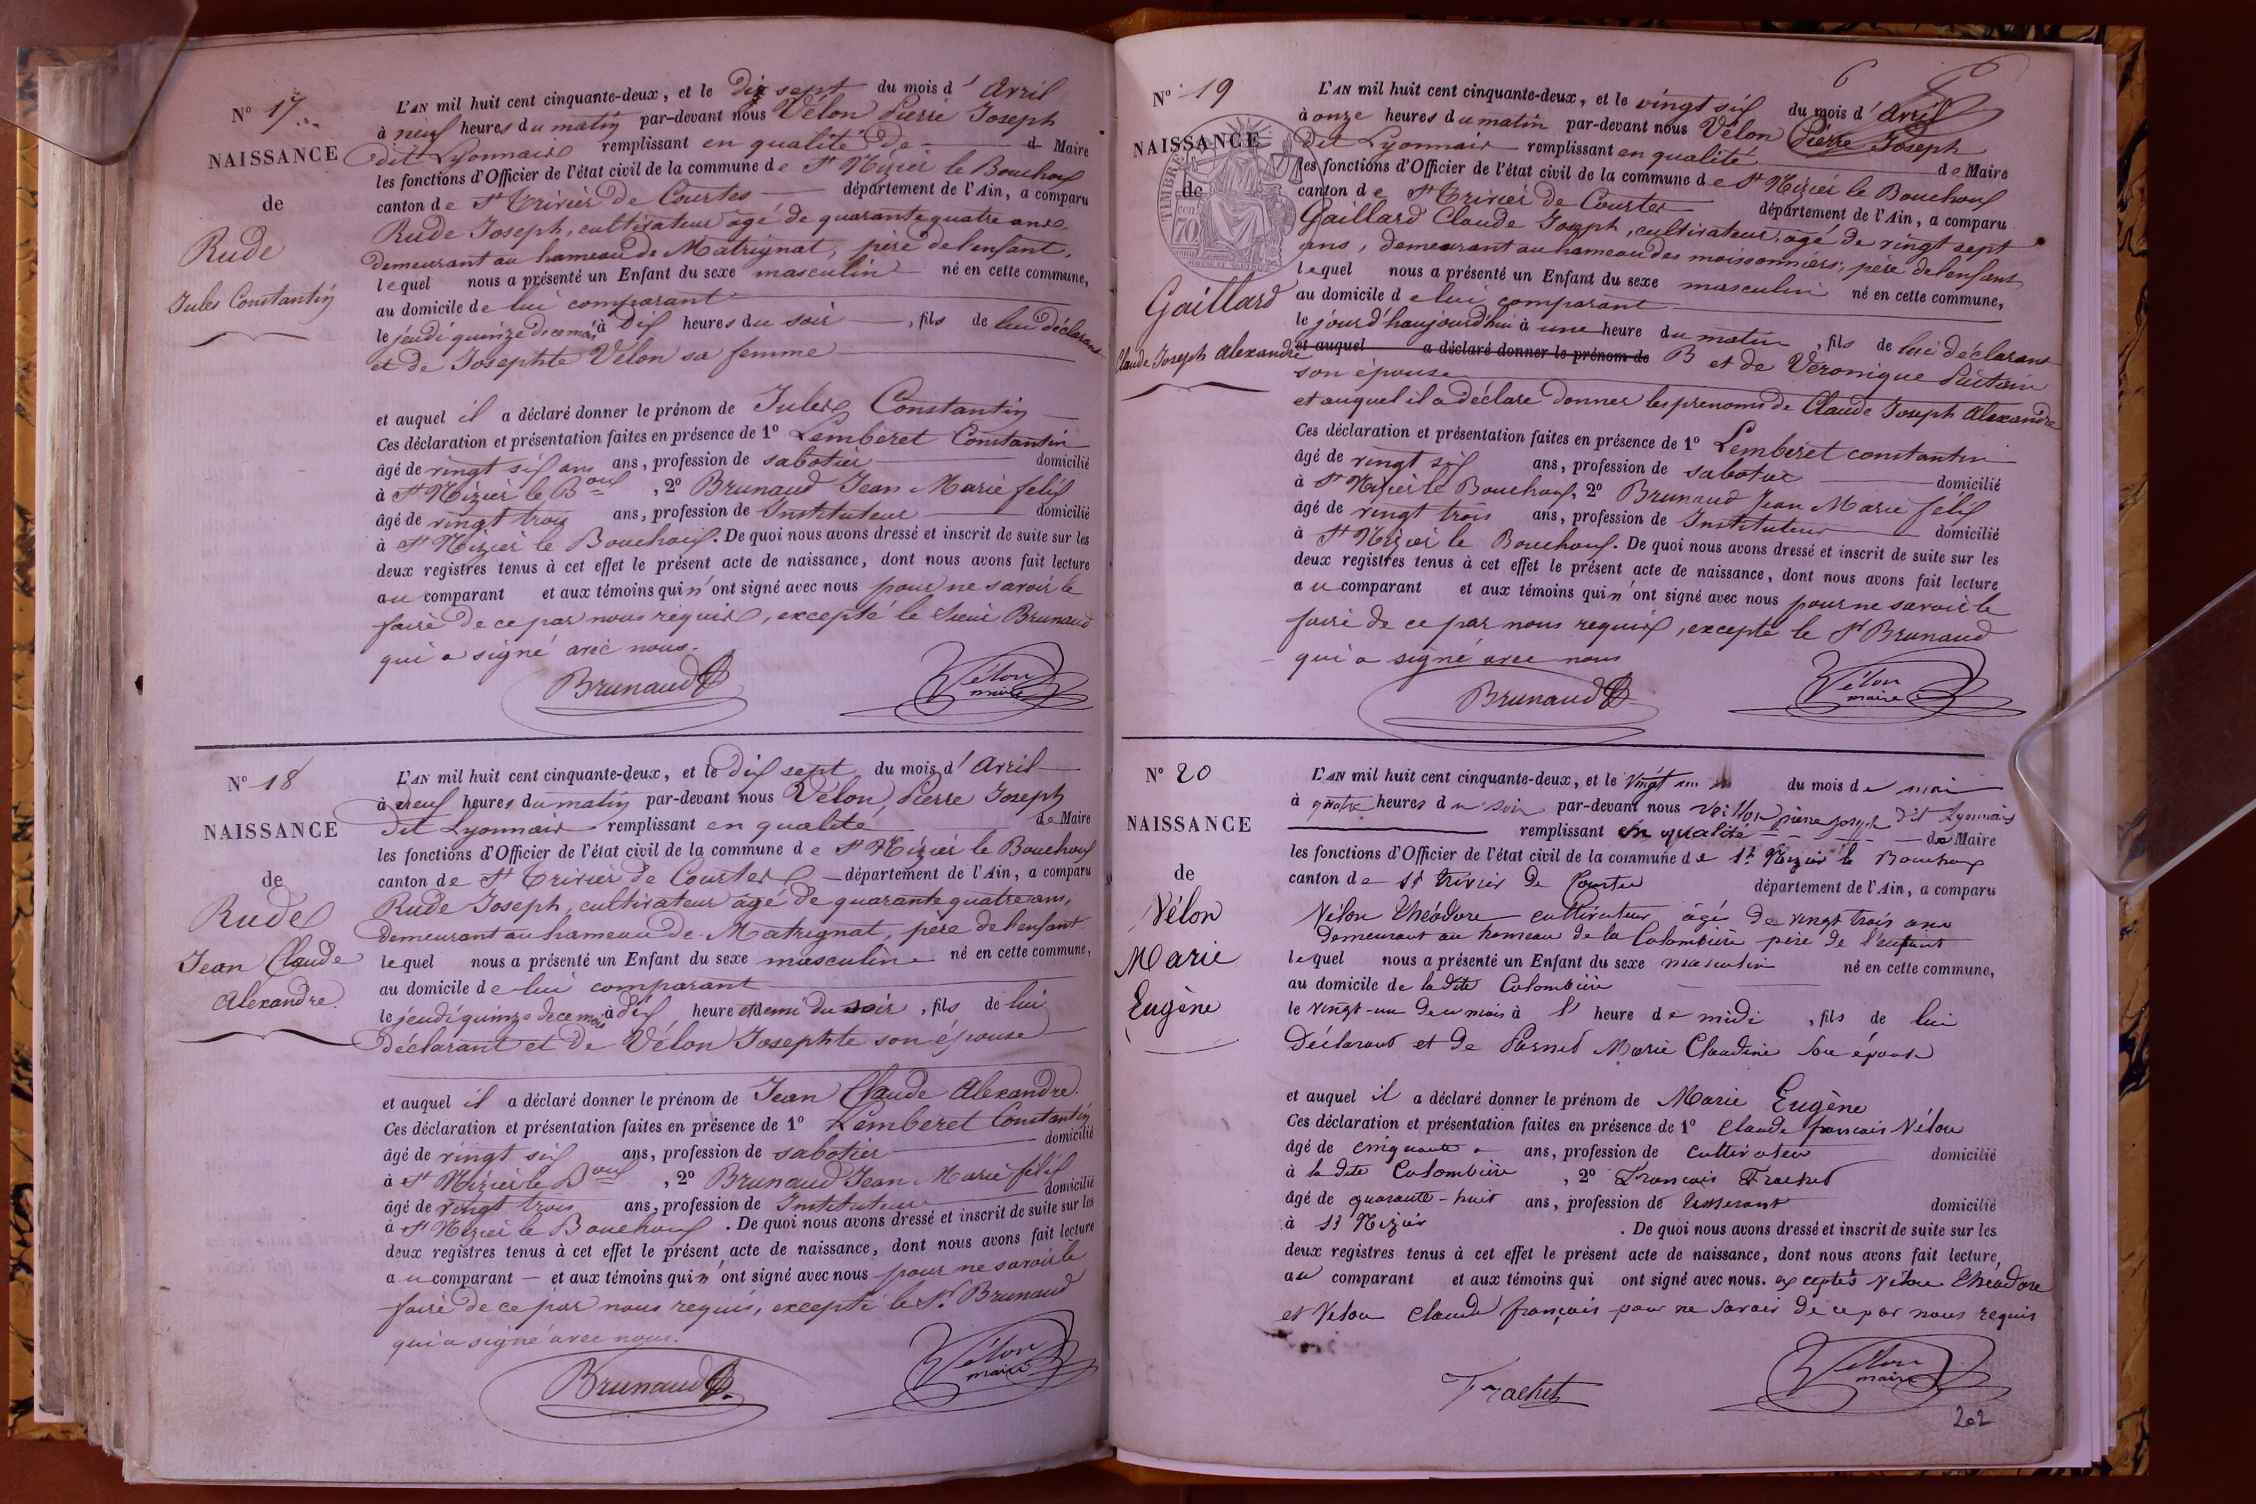 N° 17
NAISSANCE
de
Rude
Jules Constantin
L'AN mil huit cent cinquante-deux, et le dix sept du mois d'Avril
à neuf heures du matin par-devant nous Vélon Pierre Joseph
dit Lyonnais remplissant en qualité de d Maire
les fonctions d'Officier de l'état civil de la commune de St Nizier le Bouchoux
canton de St Trivier de Courtes département de l'Ain, a comparu
Rude Joseph, cultivateur âgé de quarante quatre ans,
demeurant au hameau de Matrignat, père de l'enfant,
lequel nous a présenté un Enfant du sexe masculin né en cette commune,
au domicile de lui comparant
le jeudi quinze de ce mois à dix heures du soir, fils de lui déclarant
et de Josephte Vélon sa femme
et auquel il a déclaré donner le prénom de Jules Constantin
Ces déclaration et présentation faites en présence de 1° Lemberet Constantin
âgé de vingt six ans ans, profession de sabotier domicilié
à St Nizier le Boux, 2° Brunaud Jean Marie felix
âgé de vingt trois ans, profession de Instituteur domicilié
à St Nizier le Bouchoux. De quoi nous avons dressé et inscrit de suite sur les
deux registres tenus à cet effet le présent acte de naissance, dont nous avons fait lecture
au comparant et aux témoins qui n'ont signé avec nous pour ne savoir le
faire de ce par nous requis, excepté le sieur Brunaud
qui a signé avec nous.
Brunaud
Vélon
maire
N° 18
NAISSANCE
de
Rude
Jean Claude
Alexandre
L'AN mil huit cent cinquante-deux, et le dix sept du mois d'Avril
à neuf heures du matin par-devant nous Vélon Pierre Joseph
dit Lyonnais remplissant en qualité de Maire
les fonctions d'Officier de l'état civil de la commune de St Nizier le Bouchoux
canton de St Trivier de Courtes département de l'Ain, a comparu
Rude Joseph, cultivateur âgé de quarante quatre ans,
demeurant au hameau de Matrignat, père de l'enfant
lequel nous a présenté un Enfant du sexe masculin né en cette commune,
au domicile de lui comparant
le jeudi quinze de ce mois à dix heure et demi du soir, fils de lui
déclarant et de Vélon Josephte son épouse
et auquel il a déclaré donner le prénom de Jean Claude Alexandre.
Ces déclaration et présentation faites en présence de 1° Lemberet Constantin
âgé de vingt six ans, profession de sabotier domicilié
à St Nizier le Boux, 2° Brunaud Jean Marie felix
âgé de vingt trois ans, profession de Instituteur domicilié
à St Nizier le Bouchoux. De quoi nous avons dressé et inscrit de suite sur les
deux registres tenus à cet effet le présent acte de naissance, dont nous avons fait lecture
au comparant et aux témoins qui n'ont signé avec nous pour ne savoir le
faire de ce par nous requis, excepté le Sr Brunaud
qui a signé avec nous.
Brunaud
Vélon
maire
6
N° 19
NAISSANCE
de
TIMBRE
70
Gaillard
Claude Joseph Alexandre
L'AN mil huit cent cinquante-deux, et le vingt six du mois d'Avril
à onze heures du matin par-devant nous Vélon Pierre Joseph
dit Lyonnais remplissant en qualité de Maire
les fonctions d'Officier de l'état civil de la commune de St Nizier le Bouchoux
canton de St Trivier de Courtes département de l'Ain, a comparu
Gaillard Claude Joseph, cultivateur, âgé de vingt sept
ans, demeurant au hameau des moissonniers, père de l'enfant
lequel nous a présenté un Enfant du sexe masculin né en cette commune,
au domicile de lui comparant
le jour d'haujourd'hui à une heure du matin, fils de lui déclarant
et auquel a déclaré donner le prénom de B et de Véronique
son épouse
et auquel il a déclaré donner les prenoms de Claude Joseph Alexandre
Ces déclaration et présentation faites en présence de 1° Lemberet constantin
âgé de vingt six ans, profession de sabotier domicilié
à St Nizier le Bouchoux, 2° Brunaud Jean Marie felix
âgé de vingt trois ans, profession de Instituteur domicilié
à St Nizier le Bouchoux. De quoi nous avons dressé et inscrit de suite sur les
deux registres tenus à cet effet le présent acte de naissance, dont nous avons fait lecture
au comparant et aux témoins qui n'ont signé avec nous pour ne savoir le
faire de ce par nous requis, excepté le Sr Brunaud
qui a signé avec nous
Brunaud
Vélon
maire
N° 20
NAISSANCE
de
Vélon
Marie
Eugène
L'AN mil huit cent cinquante-deux, et le vingt un du mois de mai
à quatre heures du soir par-devant nous pierre joseph dit Lyonnais
remplissant en qualité de Maire
les fonctions d'Officier de l'état civil de la commune de St Nizier le Bouchoux
canton de St Trivier de Courtes département de l'Ain, a comparu
Vélon Théodore cultivateur âgé de vingt trois ans
demeurant au hameau de la Colombière père de l'enfant
lequel nous a présenté un Enfant du sexe masculin né en cette commune,
au domicile de la dite Colombière
le vingt-un de ce mois à l' heure de midi, fils de lui
déclarant et de Marie Claudine son épouse
et auquel il a déclaré donner le prénom de Marie Eugène
Ces déclaration et présentation faites en présence de 1° Claude françois Vélon
âgé de cinquante ans, profession de cultivateur domicilié
à la dite Colombière, 2° François Trachet
âgé de quarante-huit ans, profession de Tisserant domicilié
à St Nizier. De quoi nous avons dressé et inscrit de suite sur les
deux registres tenus à cet effet le présent acte de naissance, dont nous avons fait lecture,
au comparant et aux témoins qui ont signé avec nous. exceptés Vélon Théodore
et Velon Claude françois pour ne savoir de ce par nous requis
Trachet
Vélon
maire
202